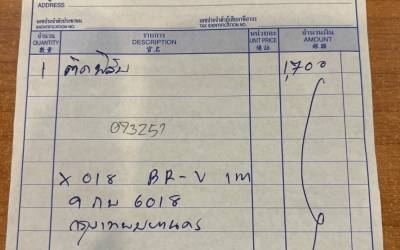 ADDRESS
เลขประจำตัวประชาชน เลขประจำตัวผู้เสียภาษีอากร
IDENTIFICATION NO. TAX IDENTIFICATION NO.
จำนวน รายการ หน่วยละ จำนวนเงิน
QUANTITY DESCRIPTION UNIT PRICE AMOUNT
數量 貨名 價註 銀碼
1 ติดฟิล์ม 1,700
093257
X 018 BR-V เทา
9 กบ 6018
กรุงเทพมหานคร